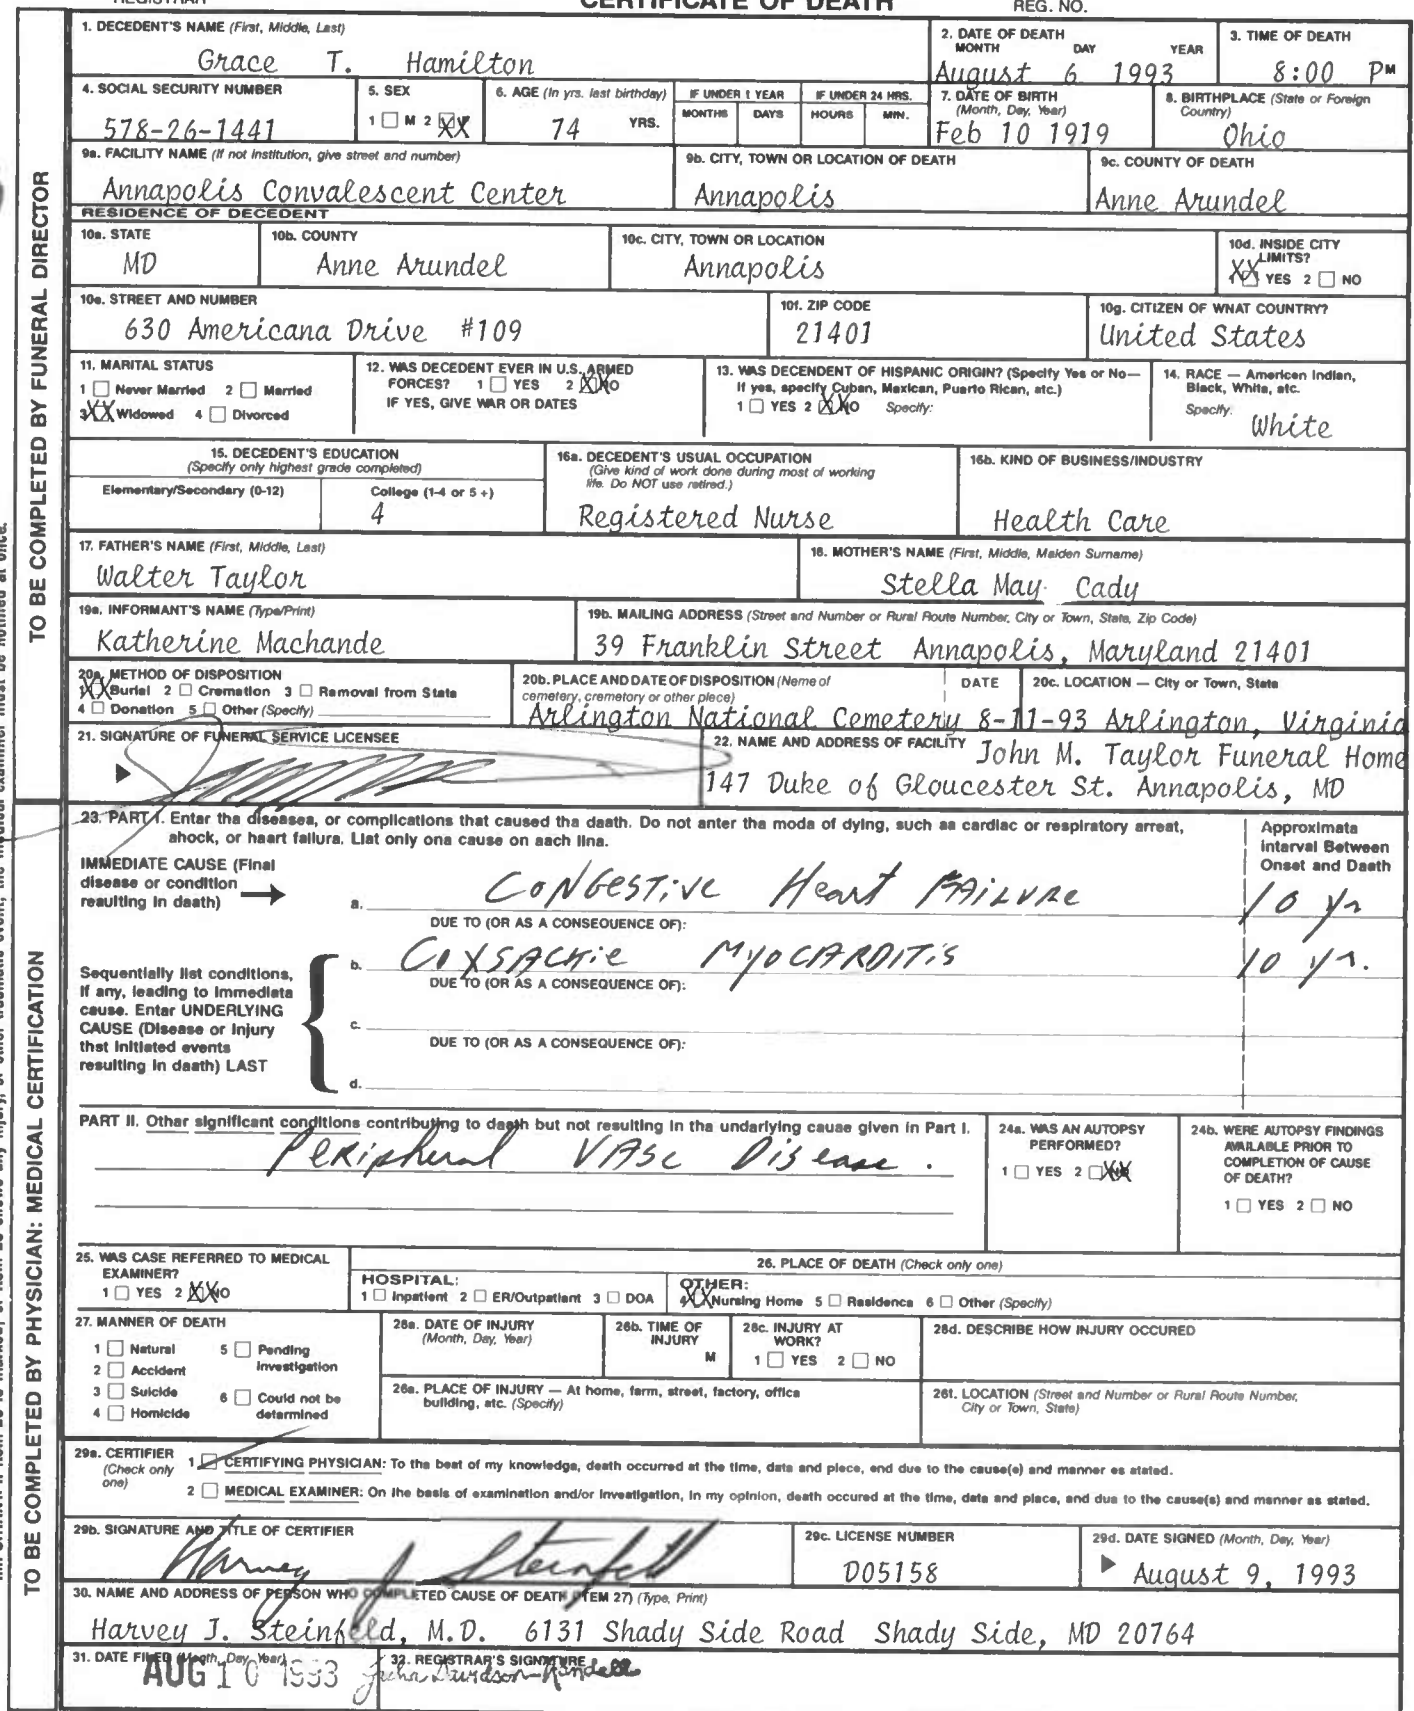 REGISTRAR CERTIFICATE OF DEATH REG. NO.
TO BE COMPLETED BY FUNERAL DIRECTOR
1. DECEDENT'S NAME (First, Middle, Last)
Grace T. Hamilton
2. DATE OF DEATH
MONTH DAY YEAR
August 6 1993
3. TIME OF DEATH
8:00 PM
4. SOCIAL SECURITY NUMBER
578-26-1441
5. SEX
1 M 2 XX
6. AGE (In yrs. last birthday)
74 YRS.
IF UNDER 1 YEAR
MONTHS DAYS
IF UNDER 24 HRS.
HOURS MIN.
7. DATE OF BIRTH
(Month, Day, Year)
Feb 10 1919
8. BIRTHPLACE (State or Foreign
Country)
Ohio
9a. FACILITY NAME (If not institution, give street and number)
Annapolis Convalescent Center
9b. CITY, TOWN OR LOCATION OF DEATH
Annapolis
9c. COUNTY OF DEATH
Anne Arundel
RESIDENCE OF DECEDENT
10a. STATE
MD
10b. COUNTY
Anne Arundel
10c. CITY, TOWN OR LOCATION
Annapolis
10d. INSIDE CITY
LIMITS?
XX YES 2 NO
10e. STREET AND NUMBER
630 Americana Drive #109
10f. ZIP CODE
21401
10g. CITIZEN OF WHAT COUNTRY?
United States
11. MARITAL STATUS
1 Never Married 2 Married
3 XX Widowed 4 Divorced
12. WAS DECEDENT EVER IN U.S. ARMED
FORCES? 1 YES 2 XX NO
IF YES, GIVE WAR OR DATES
13. WAS DECENDENT OF HISPANIC ORIGIN? (Specify Yes or No—
If yes, specify Cuban, Mexican, Puerto Rican, etc.)
1 YES 2 XX NO Specify:
14. RACE — American Indian,
Black, White, etc.
Specify:
White
15. DECEDENT'S EDUCATION
(Specify only highest grade completed)
Elementary/Secondary (0-12)
College (1-4 or 5 +)
4
16a. DECEDENT'S USUAL OCCUPATION
(Give kind of work done during most of working
life. Do NOT use retired.)
Registered Nurse
16b. KIND OF BUSINESS/INDUSTRY
Health Care
17. FATHER'S NAME (First, Middle, Last)
Walter Taylor
18. MOTHER'S NAME (First, Middle, Maiden Surname)
Stella May Cady
19a. INFORMANT'S NAME (Type/Print)
Katherine Machande
19b. MAILING ADDRESS (Street and Number or Rural Route Number, City or Town, State, Zip Code)
39 Franklin Street Annapolis, Maryland 21401
20a. METHOD OF DISPOSITION
1 XX Burial 2 Cremation 3 Removal from State
4 Donation 5 Other (Specify)
20b. PLACE AND DATE OF DISPOSITION (Name of
cemetery, crematory or other place)
DATE
20c. LOCATION — City or Town, State
Arlington National Cemetery 8-11-93 Arlington, Virginia
21. SIGNATURE OF FUNERAL SERVICE LICENSEE
22. NAME AND ADDRESS OF FACILITY John M. Taylor Funeral Home
147 Duke of Gloucester St. Annapolis, MD
TO BE COMPLETED BY PHYSICIAN: MEDICAL CERTIFICATION
23. PART I. Enter the diseases, or complications that caused the death. Do not enter the mode of dying, such as cardiac or respiratory arrest,
shock, or heart failure. List only one cause on each line.
Approximate
Interval Between
Onset and Death
IMMEDIATE CAUSE (Final
disease or condition
resulting in death)
a. Congestive Heart Failure 10 yr
DUE TO (OR AS A CONSEQUENCE OF):
b. Coxsackie Myocarditis 10 yr.
DUE TO (OR AS A CONSEQUENCE OF):
Sequentially list conditions,
if any, leading to immediate
cause. Enter UNDERLYING
CAUSE (Disease or injury
that initiated events
resulting in death) LAST
c.
DUE TO (OR AS A CONSEQUENCE OF):
d.
PART II. Other significant conditions contributing to death but not resulting in the underlying cause given in Part I.
Peripheral Vasc Disease.
24a. WAS AN AUTOPSY
PERFORMED?
1 YES 2 XX
24b. WERE AUTOPSY FINDINGS
AVAILABLE PRIOR TO
COMPLETION OF CAUSE
OF DEATH?
1 YES 2 NO
25. WAS CASE REFERRED TO MEDICAL
EXAMINER?
1 YES 2 XX NO
26. PLACE OF DEATH (Check only one)
HOSPITAL:
1 Inpatient 2 ER/Outpatient 3 DOA
OTHER:
4 XX Nursing Home 5 Residence 6 Other (Specify)
27. MANNER OF DEATH
1 Natural 5 Pending
Investigation
2 Accident
3 Suicide 6 Could not be
determined
4 Homicide
28a. DATE OF INJURY
(Month, Day, Year)
28b. TIME OF
INJURY
M
28c. INJURY AT
WORK?
1 YES 2 NO
28d. DESCRIBE HOW INJURY OCCURED
28e. PLACE OF INJURY — At home, farm, street, factory, office
building, etc. (Specify)
28f. LOCATION (Street and Number or Rural Route Number,
City or Town, State)
29a. CERTIFIER
(Check only
one)
1 CERTIFYING PHYSICIAN: To the best of my knowledge, death occurred at the time, date and place, and due to the cause(s) and manner as stated.
2 MEDICAL EXAMINER: On the basis of examination and/or investigation, in my opinion, death occured at the time, date and place, and due to the cause(s) and manner as stated.
29b. SIGNATURE AND TITLE OF CERTIFIER
Harvey J Steinfeld
29c. LICENSE NUMBER
D05158
29d. DATE SIGNED (Month, Day, Year)
August 9, 1993
30. NAME AND ADDRESS OF PERSON WHO COMPLETED CAUSE OF DEATH (ITEM 27) (Type, Print)
Harvey J. Steinfeld, M.D. 6131 Shady Side Road Shady Side, MD 20764
31. DATE FILED (Month, Day, Year)
AUG 10 1993
32. REGISTRAR'S SIGNATURE
Davidson-Randall